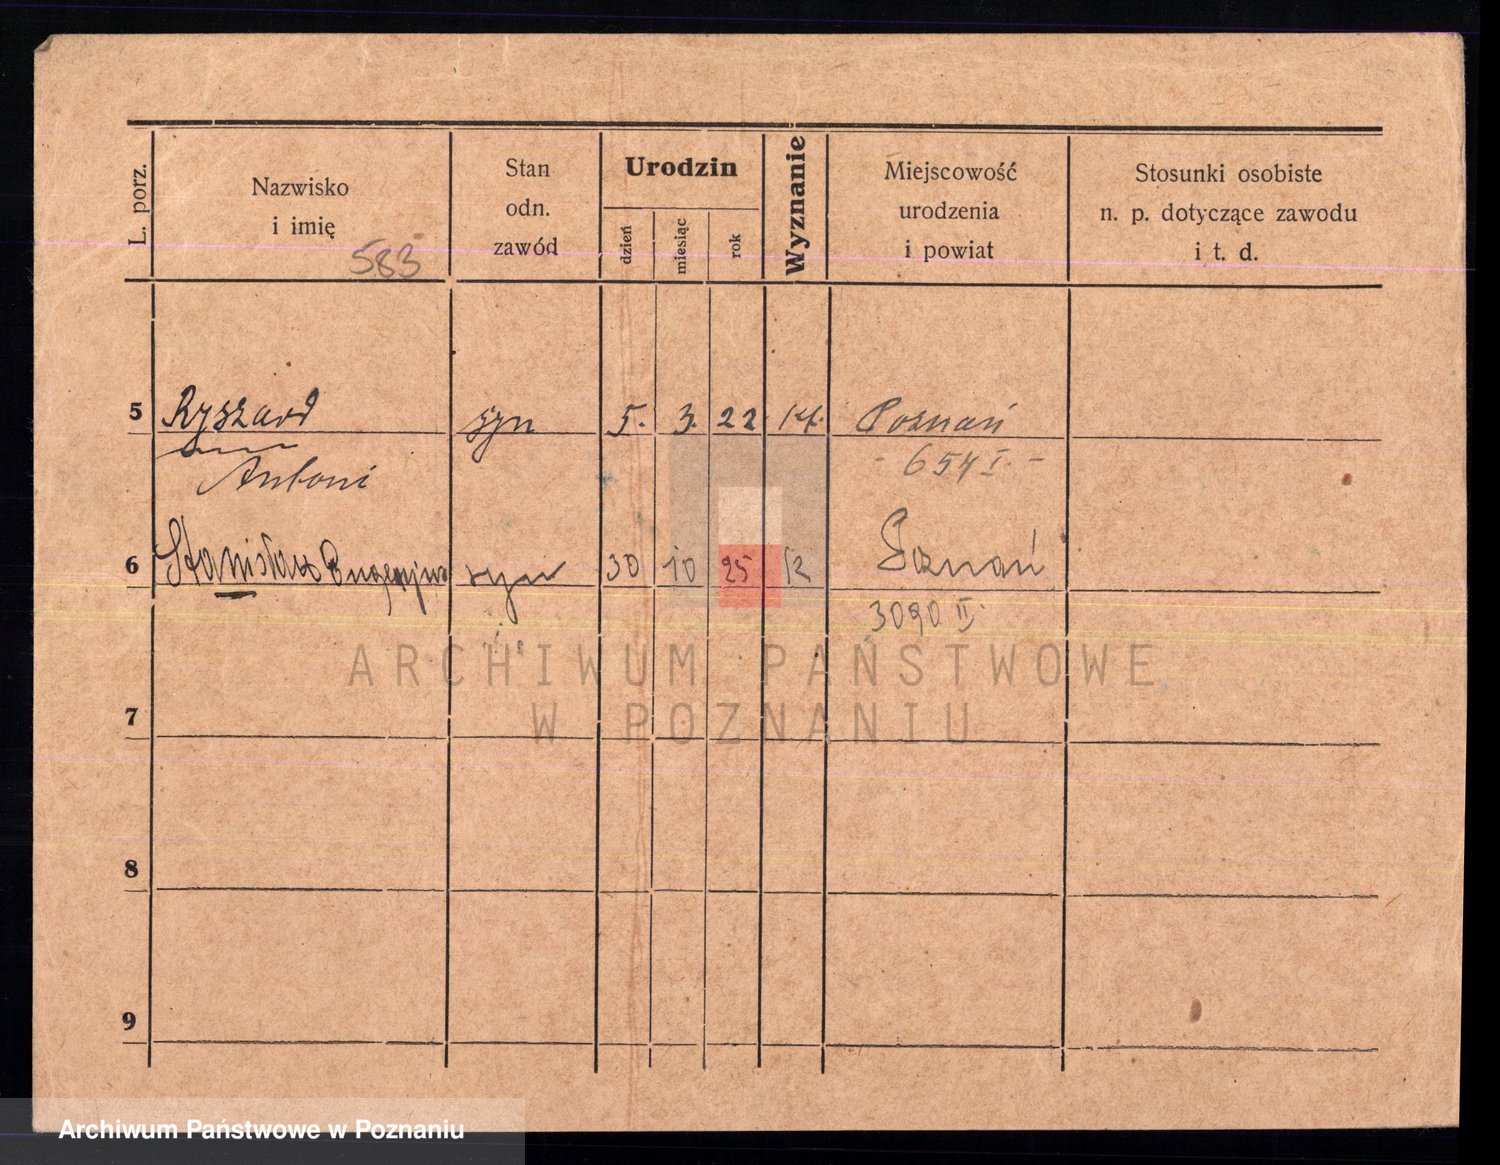 L. porz.
Nazwisko
i imię
583
Stan
odn.
zawód
Urodzin
dzień
miesiąc
rok
Wyznanie
Miejscowość
urodzenia
i powiat
Stosunki osobiste
n. p. dotyczące zawodu
i t. d.
5 Ryszard syn 5. 3. 22. kt. Poznań
Antoni - 654 I. -
6 Stanisław Eugenjusz syn 30 10 25 k Poznań
3090 II.
ARCHIWUM PAŃSTWOWE
W POZNANIU
7
8
9
Archiwum Państwowe w Poznaniu